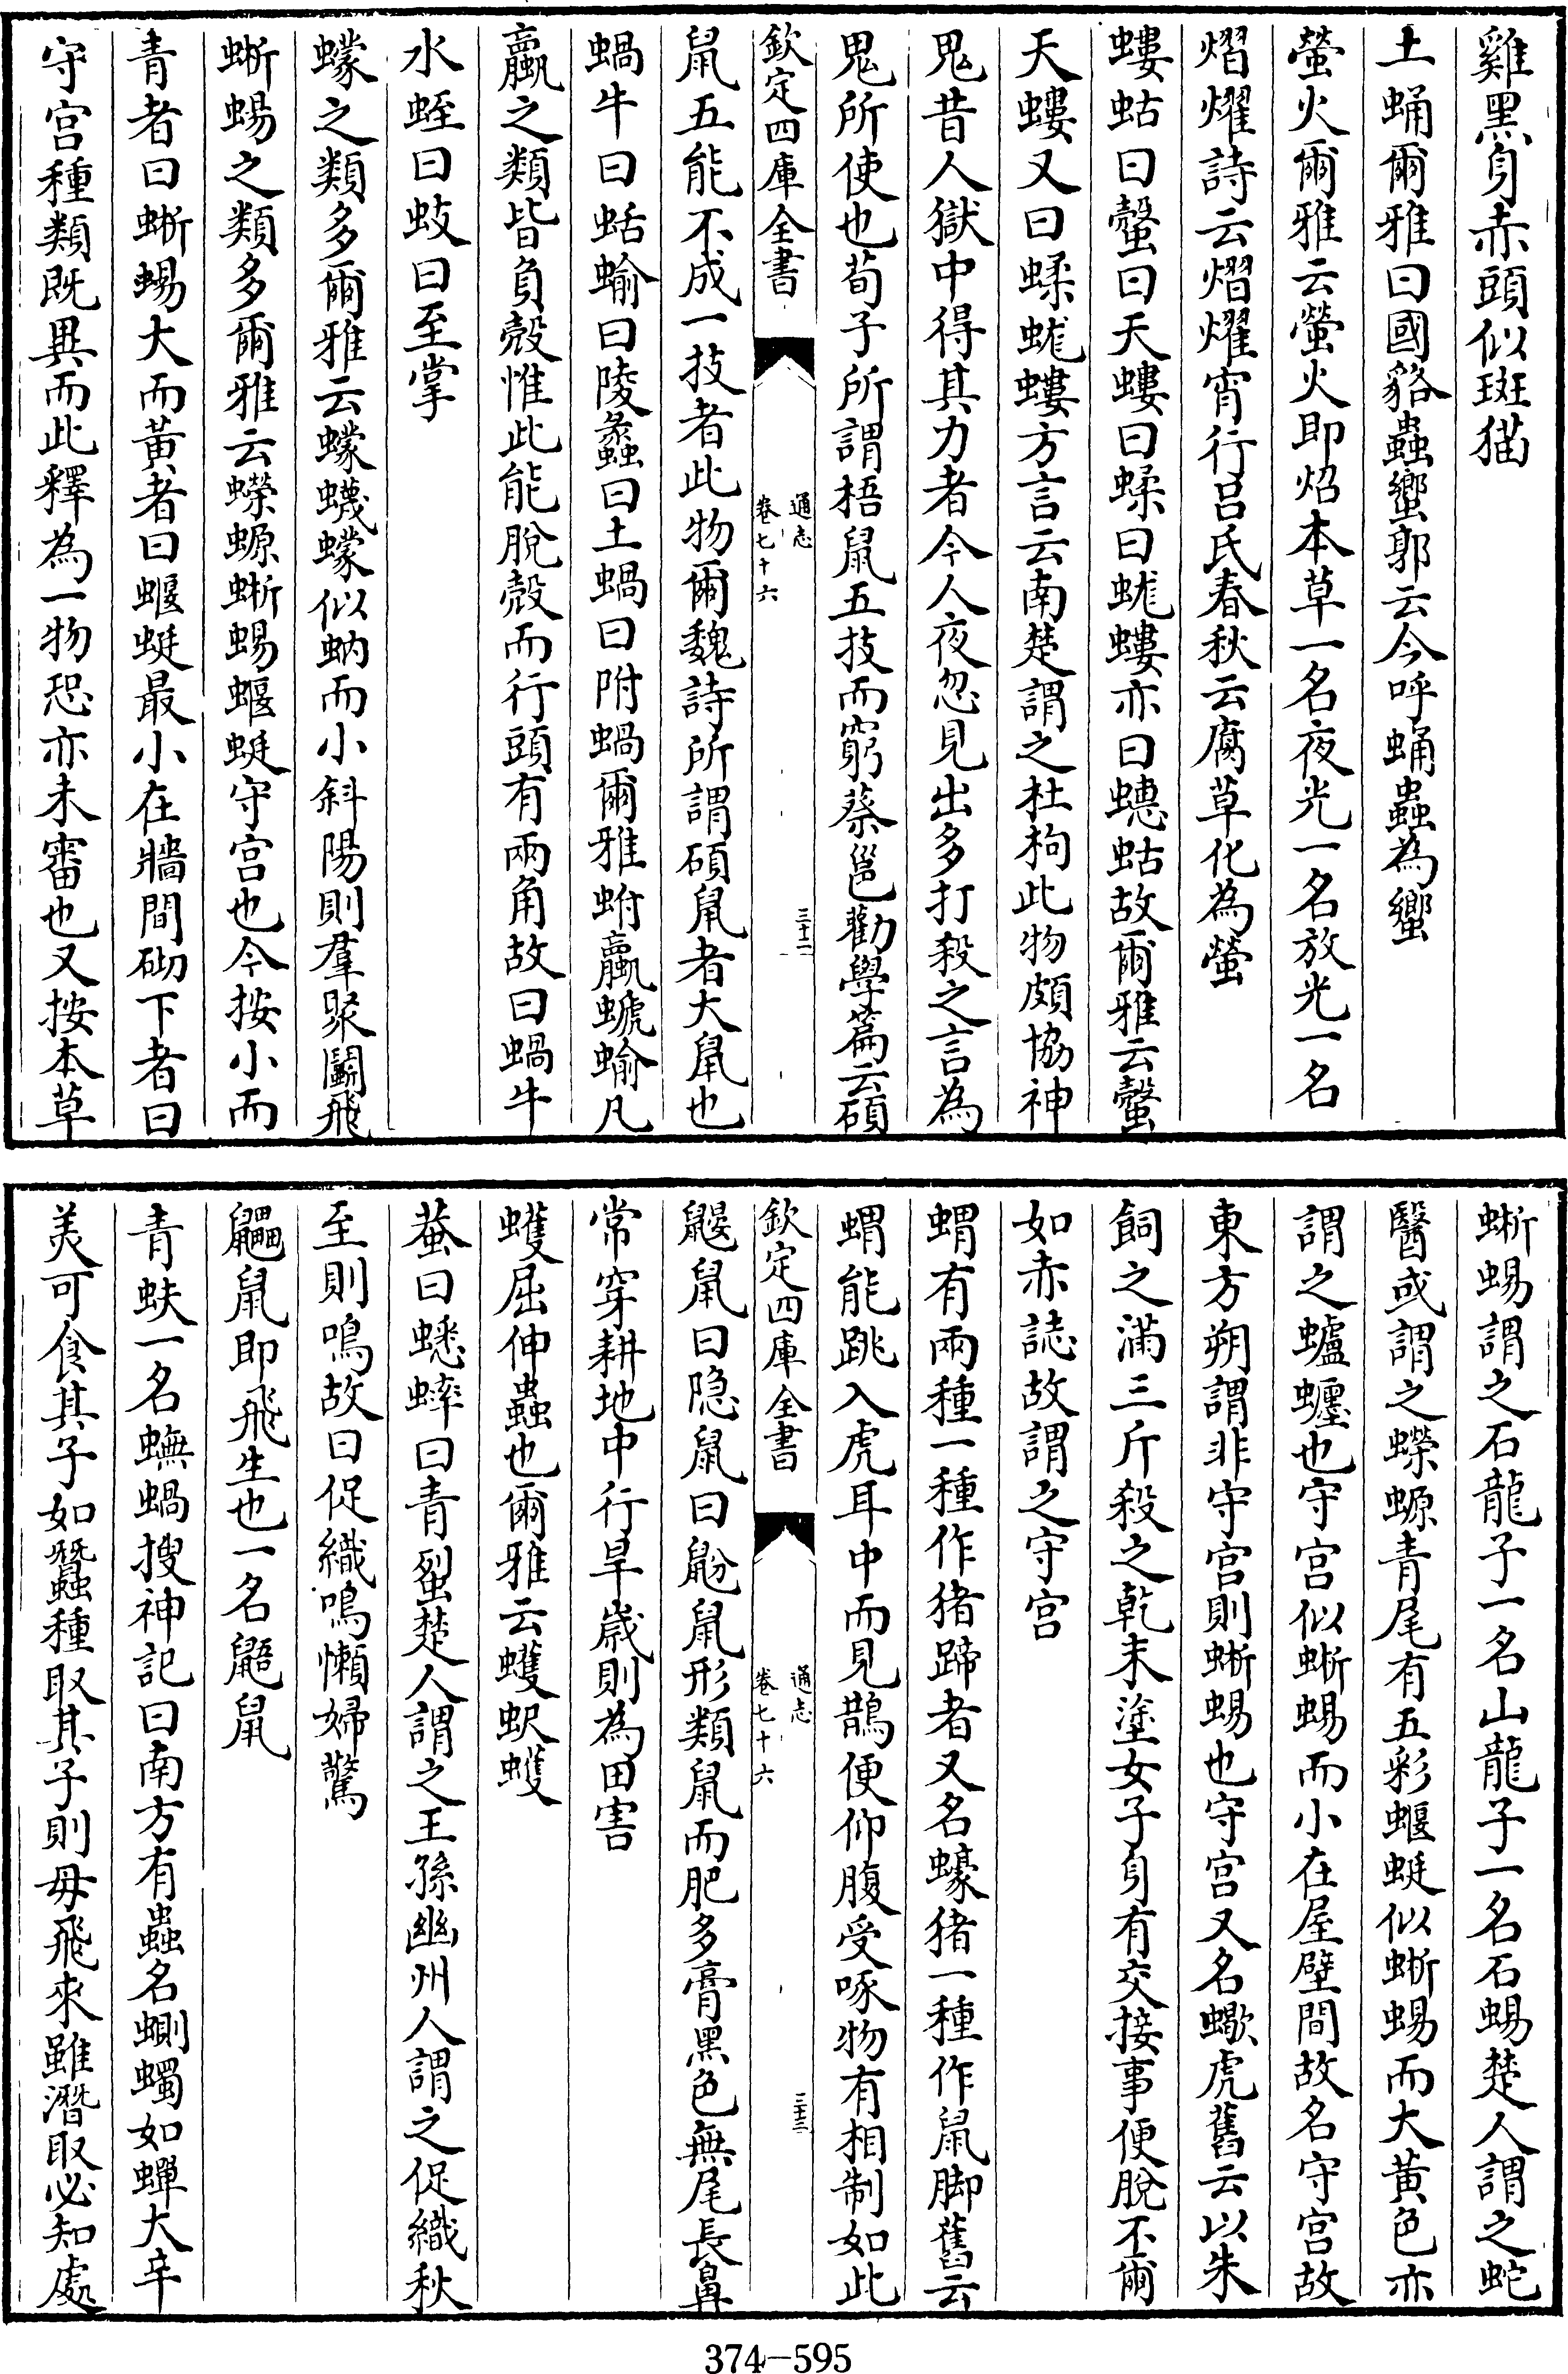 雞黑身赤頭似斑猫
土蛹爾雅曰國貉蟲蠁郭云今呼蛹蟲為蠁
螢火爾雅云螢火即炤本草一名夜光一名放光一名
熠燿詩云熠燿宵行吕氏春秋云腐草化為螢
螻蛄曰螜曰天螻曰蝚曰蛖螻亦曰蟪蛄故爾雅云螜
天螻又曰蝚蛖螻方言云南楚謂之杜狗此物頗協神
鬼昔人獄中得其力者今人夜忽見出多打殺之言為
鬼所使也荀子所謂梧鼠五技而窮蔡邕勸學篇云碩
欽定四庫全書
通志
卷七十六
三十二
鼠五能不成一技者此物爾魏詩所謂碩鼠者大鼠也
蝸牛曰蛞蝓曰陵蠡曰土蝸曰附蝸爾雅蚹蠃螔蝓凡
蠃之類皆負殻惟此能脫殻而行頭有兩角故曰蝸牛
水蛭曰蚑曰至掌
蠓之類多爾雅云蠓蠛蠓似蚋而小斜陽則羣聚鬭飛
蜥蜴之類多爾雅云蠑螈蜥蜴蝘蜓守宫也今按小而
青者曰蜥蜴大而黃者曰蝘蜓最小在牆間砌下者曰
守宫種類既異而此釋為一物恐亦未審也又按本草
蜥蜴謂之石龍子一名山龍子一名石蜴楚人謂之蛇
醫或謂之蠑螈青尾有五彩蝘蜓似蜥蜴而大黄色亦
謂之蠦𧓋也守宫似蜥蜴而小在屋壁間故名守宫故
東方朔謂非守宫則蜥蜴也守宫又名蠍虎舊云以朱
飼之滿三斤殺之乾末塗女子身有交接事便脫不爾
如赤誌故謂之守宫
蝟有兩種一種作猪蹄者又名蠔猪一種作鼠脚舊云
蝟能跳入虎耳中而見鵲便仰腹受啄物有相制如此
欽定四庫全書
通志
卷七十六
三十三
鼴鼠曰隠鼠曰鼢鼠形類鼠而肥多膏黑色無尾長鼻
常穿耕地中行旱歳則為田害
蠖屈伸蟲也爾雅云蠖蚇蠖
蛬曰蟋蟀曰青𧊿楚人謂之王孫幽州人謂之促織秋
至則鳴故曰促織鳴懶婦驚
鼺鼠即飛生也一名鼯鼠
青蚨一名蟱蝸搜神記曰南方有蟲名蝲蠋如蟬大辛
美可食其子如蠶種取其子則母飛來雖潛取必知處
374-595